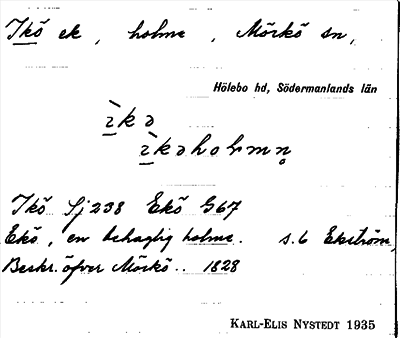 Ikö ek, holme, Mörkö sn,
Hölebo hd, Södermanlands län
ì̱kə
ì̱kəholmn̥
Ikö Sj 238 Ekö G67
Ekö, en behaglig holme. s. 6 Ekström,
Beskr. öfver Mörkö.. 1828
KARL-ELIS NYSTEDT 1935